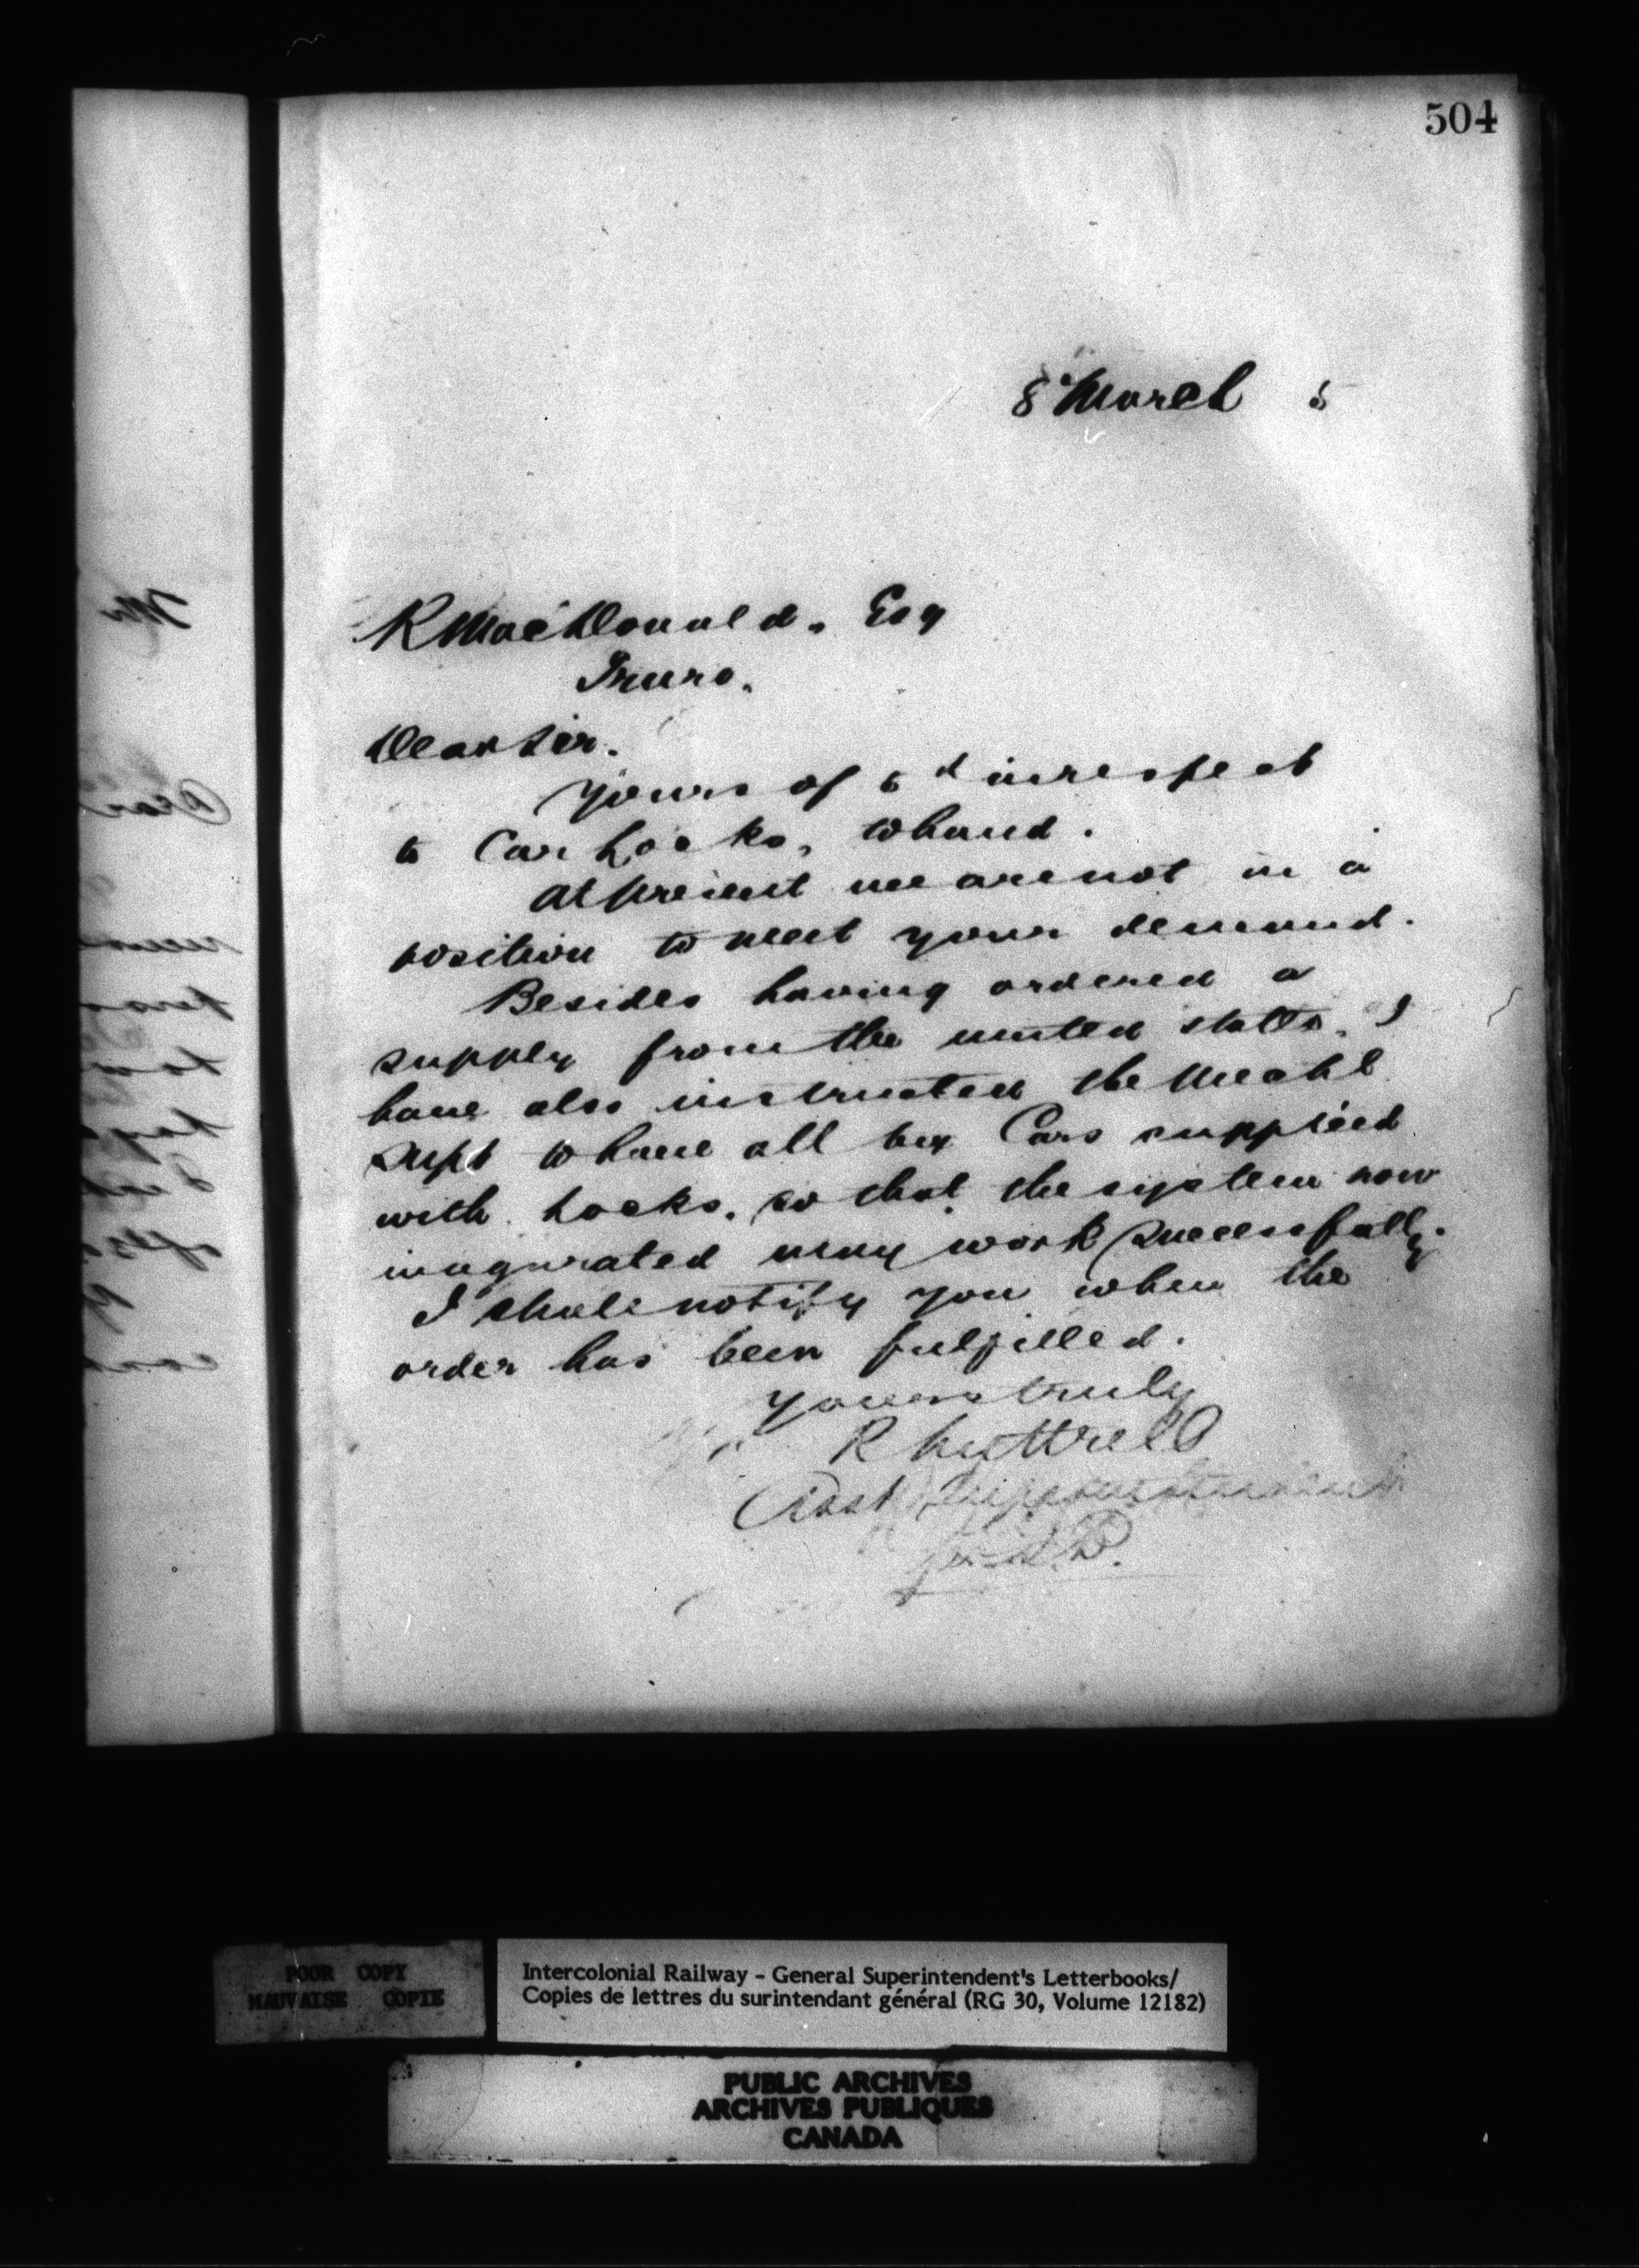 504
8 March 5
R MacDonald. Esq
Truro.
Dear Sir.
Yours of 6th in respect
to Car Locks, to hand.
At present we are not in a
position to meet your demand.
Besides having ordered a
supply from the united states, I
have also instructed the Mechl
Supt to have all box Cars supplied
with Locks. so that the system now
inagurated may work successfully.
I shall notify you when the
order has been fulfilled.
Yours truly
R Luttrell
Asst Superintendent
POOR COPY
MAUVAISE COPIE
Intercolonial Railway - General Superintendent's Letterbooks/
Copies de lettres du surintendant général (RG 30, Volume 12182)
PUBLIC ARCHIVES
ARCHIVES PUBLIQUES
CANADA